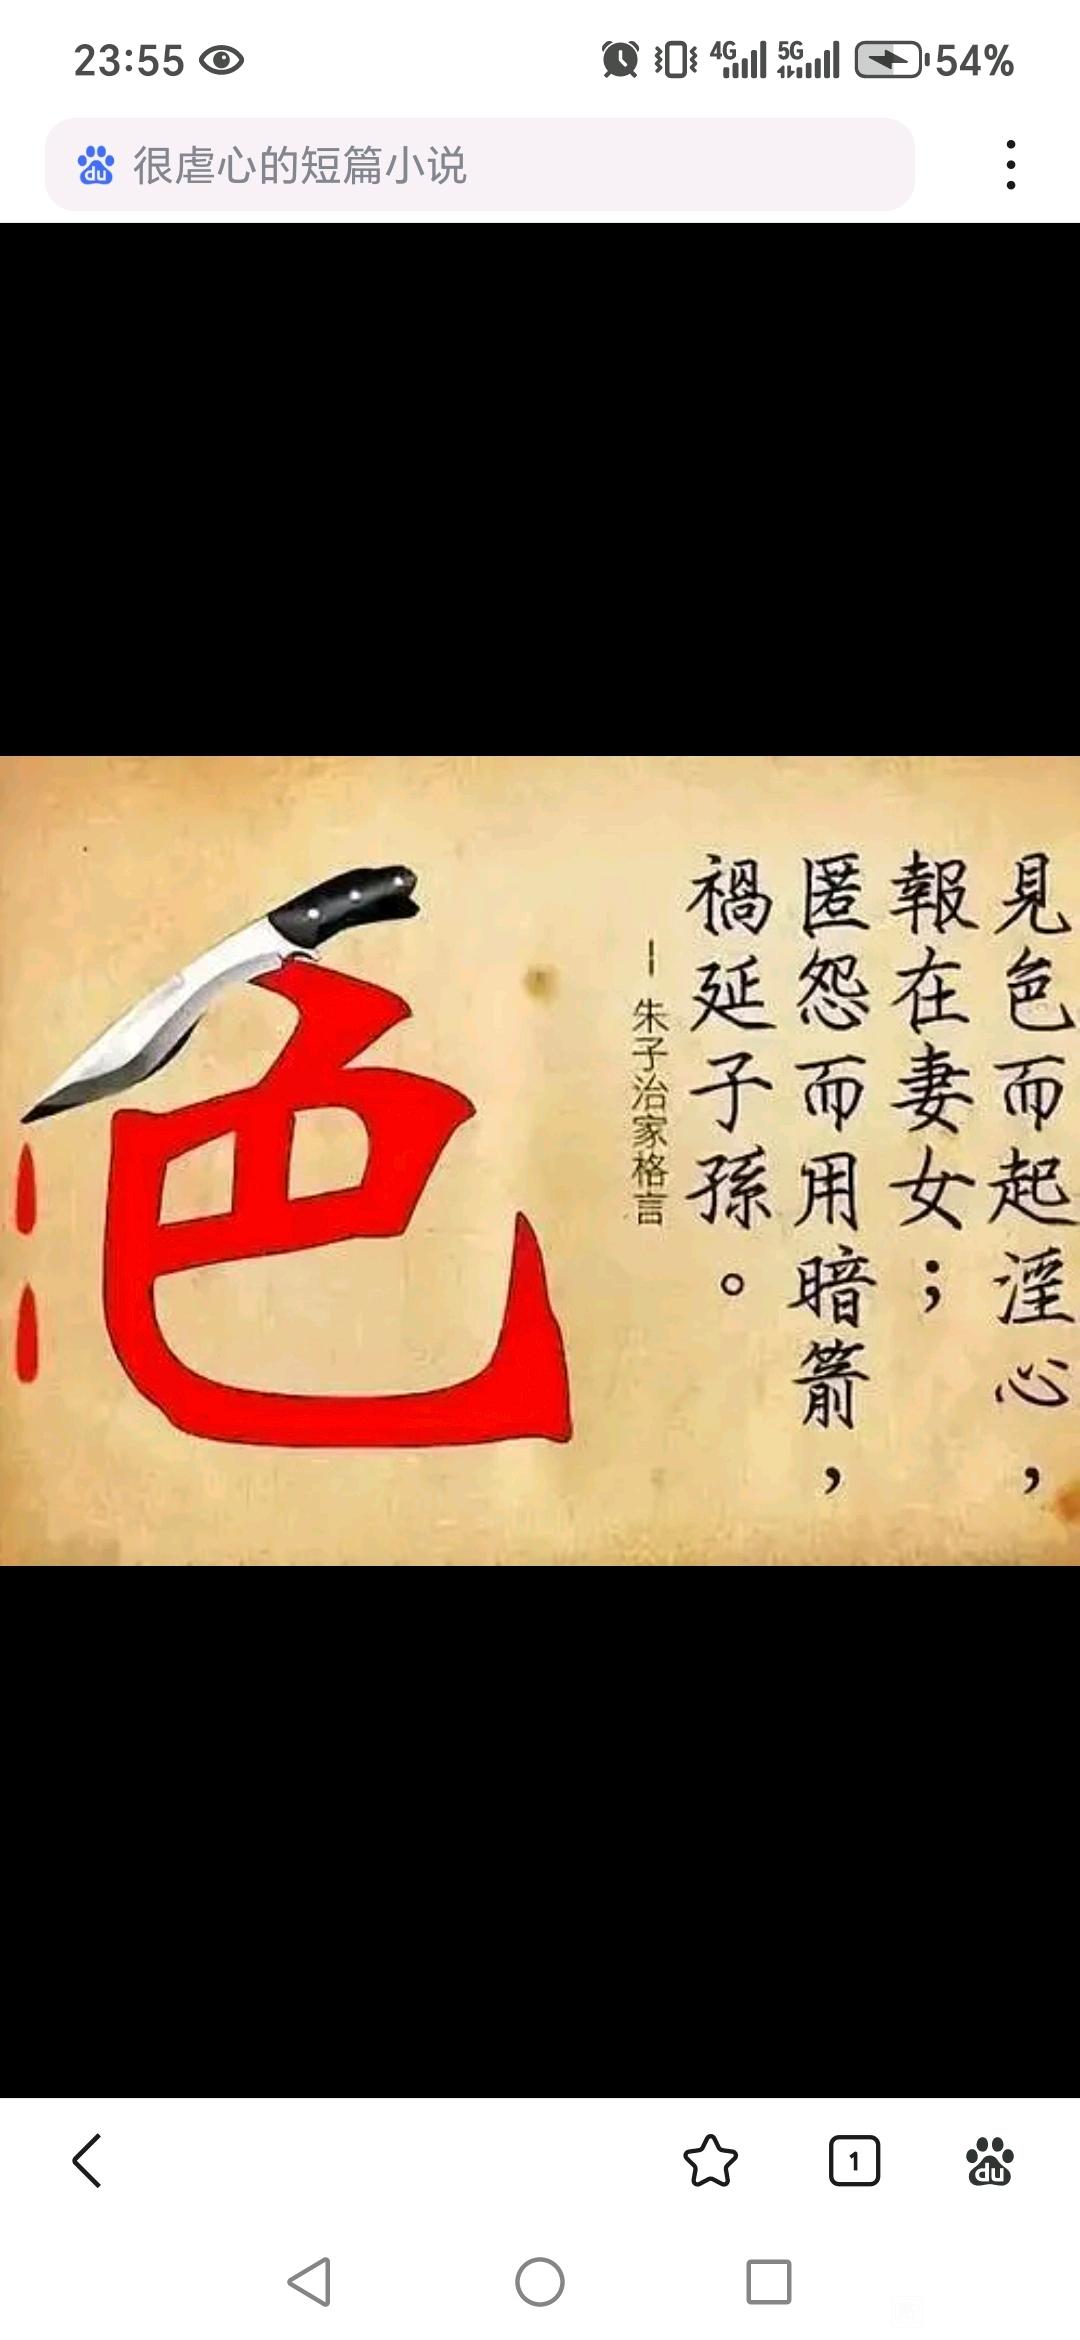 23:55
4G
5G
54%
du 很虐心的短篇小说
見色而起淫心，
報在妻女；
匿怨而用暗箭，
禍延子孫。
—朱子治家格言
色
1
du